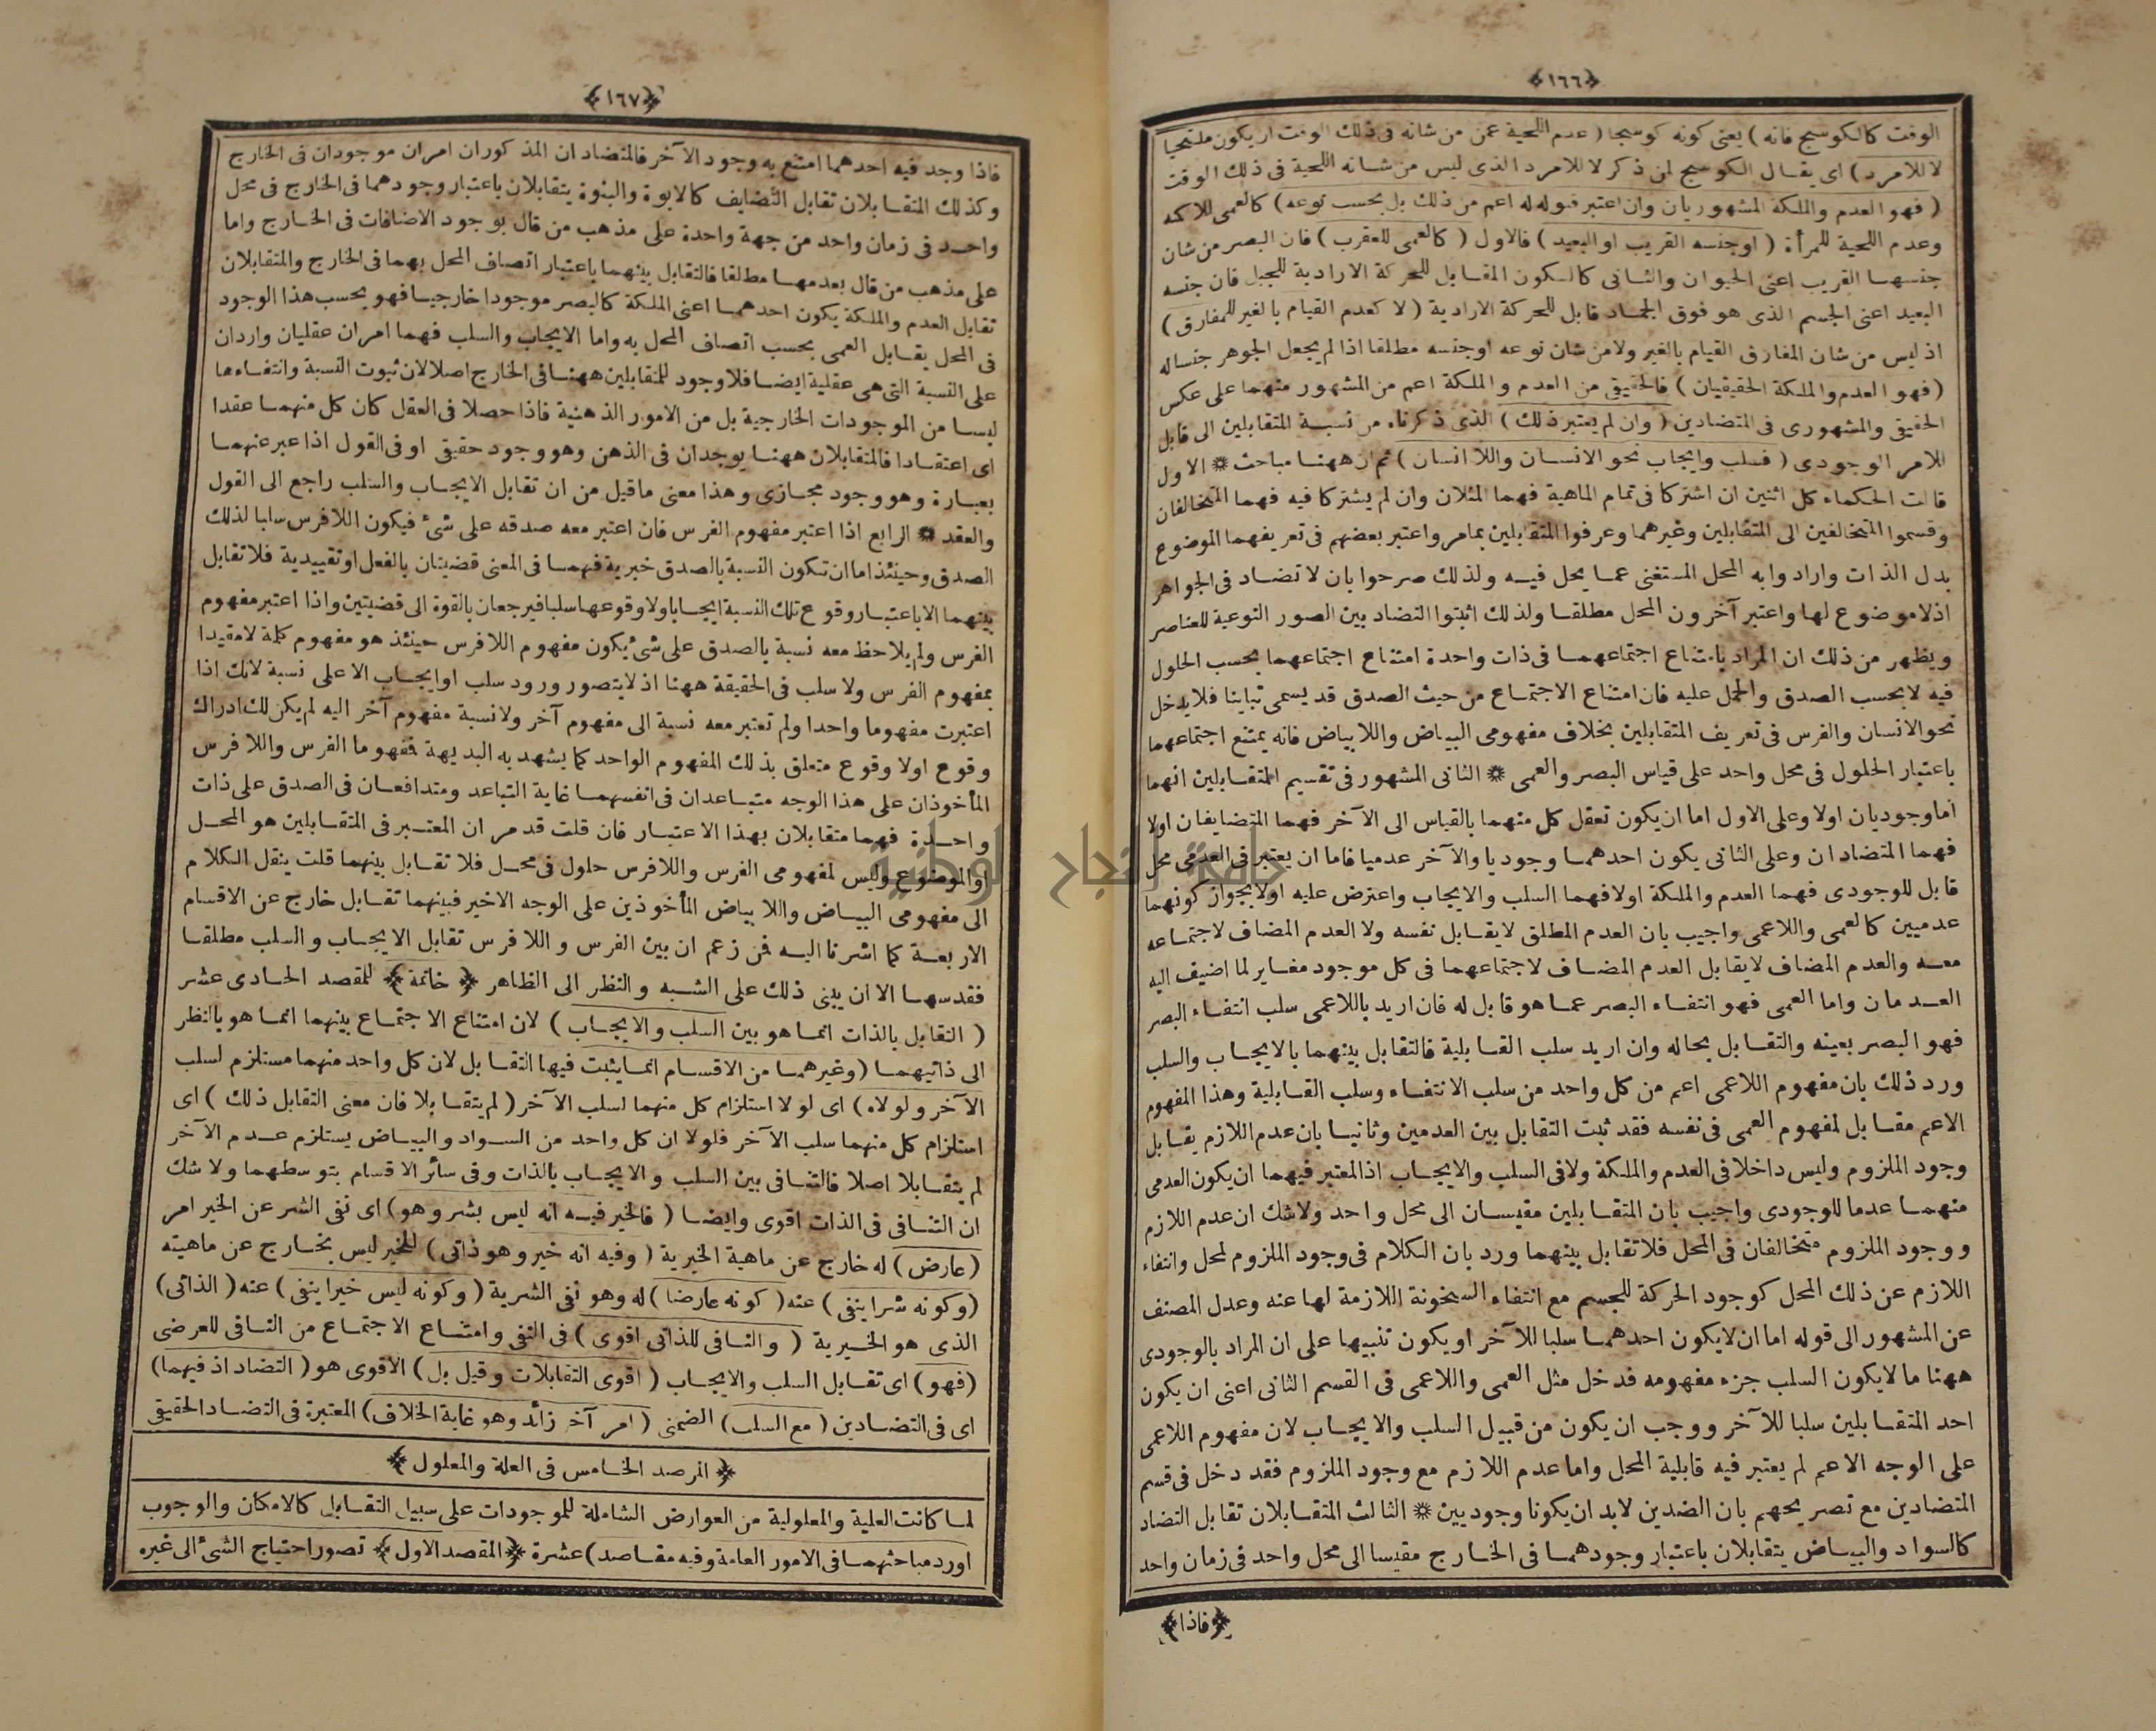 ﴿١٦٦﴾
الوقت كالكوسج فانه ) يعنى كونه كوسجا ( عدم اللحية عمن من شانه فى ذلك الوقت ان يكون ملتحيا
لا للامرد ) اى يقال الكوسج لمن ذكر لا للامرد الذى ليس من شانه اللحية فى ذلك الوقت
( فهو العدم والملكة المشهوريان وان اعتبر قبوله له اعم من ذلك بل بحسب نوعه ) كالعمى للاكمه
وعدم اللحية للمرأة ( اوجنسه القريب او البعيد ) فالاول ( كالعمى للعقرب ) فان البصر من شان
جنسها القريب اعنى الحيوان والثانى كالسكون المقابل للحركة الارادية للجبل فان جنسه
البعيد اعنى الجسم الذى هو فوق الجماد قابل للحركة الارادية ( لا كعدم القيام بالغير للمفارق )
اذ ليس من شان المفارق القيام بالغير ولا من شان نوعه اوجنسه مطلقا اذا لم يجعل الجوهر جنسا له
( فهو العدم والملكة الحقيقيان ) فالحقيقى من العدم والملكة اعم من المشهور منهما على عكس
الحقيقى والمشهورى فى المتضادين ( وان لم يعتبر ذلك ) الذى ذكرناه من نسبة المتقابلين الى قابل
للامر الوجودى ( فسلب وايجاب نحو الانسان واللاانسان ) ثم ان ههنا مباحث * الاول
قالت الحكماء كل اثنين ان اشتركا فى تمام الماهية فهما المثلان وان لم يشتركا فيه فهما المتخالفان
وقسموا المتخالفين الى المتقابلين وغيرهما وعرفوا المتقابلين بمامر واعتبر بعضهم فى تعريفهما الموضوع
بدل الذات وارادوا به المحل المستغنى عما يحل فيه ولذلك صرحوا بان لا تضاد فى الجواهر
اذ لا موضوع لها واعتبر آخرون المحل مطلقا ولذلك اثبتوا التضاد بين الصور النوعية للعناصر
ويظهر من ذلك ان المراد بامتناع اجتماعهما فى ذات واحدة امتناع اجتماعهما بحسب الحلول
فيه لا بحسب الصدق والحمل عليه فان امتناع الاجتماع من حيث الصدق قد يسمى تباينا فلا يدخل
نحو الانسان والفرس فى تعريف المتقابلين بخلاف مفهومى البياض واللابياض فانه يمتنع اجتماعهما
باعتبار الحلول فى محل واحد على قياس البصر والعمى * الثانى المشهور فى تقسيم المتقابلين انهما
اما وجوديان اولا وعلى الاول اما ان يكون تعقل كل منهما بالقياس الى الآخر فهما المتضايفان اولا
فهما المتضادان وعلى الثانى يكون احدهما وجوديا والآخر عدميا فاما ان يعتبر فى العدمى محل
قابل للوجودى فهما العدم والملكة اولا فهما السلب والايجاب واعترض عليه اولا بجواز كونهما
عدميين كالعمى واللاعمى واجيب بان العدم المطلق لا يقابل نفسه ولا العدم المضاف لاجتماعه
معه والعدم المضاف لا يقابل العدم المضاف لاجتماعهما فى كل موجود مغاير لما اضيف اليه
العدمان واما العمى فهو انتفاء البصر عما هو قابل له فان اريد باللاعمى سلب انتفاء البصر
فهو البصر بعينه والتقابل بحاله وان اريد سلب القابلية فالتقابل بينهما بالايجاب والسلب
ورد ذلك بان مفهوم اللاعمى اعم من كل واحد من سلب الانتفاء وسلب القابلية وهذا المفهوم
الاعم مقابل لمفهوم العمى فى نفسه فقد ثبت التقابل بين العدمين وثانيا بان عدم اللازم يقابل
وجود الملزوم وليس داخلا فى العدم والملكة ولا فى السلب والايجاب اذ المعتبر فيهما ان يكون العدمى
منهما عدما للوجودى واجيب بان المتقابلين مقيسان الى محل واحد ولا شك ان عدم اللازم
ووجود الملزوم متخالفان فى المحل فلا تقابل بينهما ورد بان الكلام فى وجود الملزوم لمحل وانتفاء
اللازم عن ذلك المحل كوجود الحركة للجسم مع انتفاء السخونة اللازمة لها عنه وعدل المصنف
عن المشهور الى قوله اما ان لا يكون احدهما سلبا للآخر او يكون تنبيها على ان المراد بالوجودى
ههنا ما لا يكون السلب جزء مفهومه فدخل مثل العمى واللاعمى فى القسم الثانى اعنى ان يكون
احد المتقابلين سلبا للآخر ووجب ان يكون من قبيل السلب والايجاب لان مفهوم اللاعمى
على الوجه الاعم لم يعتبر فيه قابلية المحل واما عدم اللازم مع وجود الملزوم فقد دخل فى قسم
المتضادين مع تصريحهم بان الضدين لابد ان يكونا وجوديين * الثالث المتقابلان تقابل التضاد
كالسواد والبياض يتقابلان باعتبار وجودهما فى الخارج مقيسا الى محل واحد فى زمان واحد
﴿فاذا﴾
﴿١٦٧﴾
فاذا وجد فيه احدهما امتنع به وجود الآخر فالمتضادان المذكوران امران موجودان فى الخارج
وكذلك المتقابلان تقابل التضايف كالابوة والبنوة يتقابلان باعتبار وجودهما فى الخارج فى محل
واحد فى زمان واحد من جهة واحدة على مذهب من قال بوجود الاضافات فى الخارج واما
على مذهب من قال بعدمها مطلقا فالتقابل بينهما باعتبار اتصاف المحل بهما فى الخارج والمتقابلان
تقابل العدم والملكة يكون احدهما اعنى الملكة كالبصر موجودا خارجيا فهو بحسب هذا الوجود
فى المحل يقابل العمى بحسب اتصاف المحل به واما الايجاب والسلب فهما امران عقليان واردان
على النسبة التى هى عقلية ايضا فلا وجود للمتقابلين ههنا فى الخارج اصلا لان ثبوت النسبة وانتفاءها
ليسا من الموجودات الخارجية بل من الامور الذهنية فاذا حصلا فى العقل كان كل منهما عقدا
اى اعتقادا فالمتقابلان ههنا يوجدان فى الذهن وهو وجود حقيقى او فى القول اذا عبر عنهما
بعبارة وهو وجود مجازى وهذا معنى ماقيل من ان تقابل الايجاب والسلب راجع الى القول
والعقد * الرابع اذا اعتبر مفهوم الفرس فان اعتبر معه صدقه على شئ فيكون اللافرس سلبا لذلك
الصدق وحينئذ اما ان تكون النسبة بالصدق خبرية فهما فى المعنى قضيتان بالفعل او تقييدية فلا تقابل
بينهما الا باعتبار وقوع تلك النسبة ايجابا ولا وقوعها سلبا فيرجعان بالقوة الى قضيتين واذا اعتبر مفهوم
الفرس ولم يلاحظ معه نسبة بالصدق على شئ يكون مفهوم اللافرس حينئذ هو مفهوم كلمة لا مقيدا
بمفهوم الفرس ولا سلب فى الحقيقة ههنا اذ لا يتصور ورود سلب او ايجاب الا على نسبة لانك اذا
اعتبرت مفهوما واحدا ولم تعتبر معه نسبة الى مفهوم آخر ولا نسبة مفهوم آخر اليه لم يكن لك ادراك
وقوع اولا وقوع متعلق بذلك المفهوم الواحد كما يشهد به البديهة ففهوما الفرس واللافرس
المأخوذان على هذا الوجه متباعدان فى انفسهما غاية التباعد ومتدافعان فى الصدق على ذات
واحدة فهما متقابلان بهذا الاعتبار فان قلت قد مر ان المعتبر فى المتقابلين هو المحل
او الموضوع وليس لمفهومى الفرس واللافرس حلول فى محل فلا تقابل بينهما قلت ينقل الكلام
الى مفهومى البياض واللابياض المأخوذين على الوجه الاخير فبينهما تقابل خارج عن الاقسام
الاربعة كما اشرنا اليه فمن زعم ان بين الفرس واللافرس تقابل الايجاب والسلب مطلقا
فقد سها الا ان يبنى ذلك على الشبه والنظر الى الظاهر ﴿ خاتمة ﴾ للمقصد الحادى عشر
( التقابل بالذات انما هو بين السلب والايجاب ) لان امتناع الاجتماع بينهما انما هو بالنظر
الى ذاتيهما ( وغيرهما من الاقسام انما يثبت فيها التقابل لان كل واحد منهما مستلزم لسلب
الآخر ولولاه ) اى لولا استلزام كل منهما لسلب الآخر ( لم يتقابلا فان معنى التقابل ذلك ) اى
استلزام كل منهما سلب الآخر فلولا ان كل واحد من السواد والبياض يستلزم عدم الآخر
لم يتقابلا اصلا فالتنافى بين السلب والايجاب بالذات وفى سائر الاقسام بتوسطهما ولا شك
ان التنافى فى الذات اقوى وايضا ( فالخير فيه انه ليس بشر وهو ) اى نفى الشر عن الخير امر
( عارض ) له خارج عن ماهية الخيرية ( وفيه انه خير وهو ذاتى ) للخير ليس بخارج عن ماهيته
( وكونه شرا ينفى ) عنه ( كونه عارضا ) له وهو نفى الشرية ( وكونه ليس خيرا ينفى ) عنه ( الذاتى )
الذى هو الخيرية ( والنافى للذاتى اقوى ) فى النفى وامتناع الاجتماع من النافى للعرضى
( فهو ) اى تقابل السلب والايجاب ( اقوى التقابلات وقيل بل ) الاقوى هو ( التضاد اذ فيهما )
اى فى المتضادين ( مع السلب ) الضمنى ( امر آخر زائد وهو غاية الخلاف ) المعتبرة فى التضاد الحقيقى
﴿ المرصد الخامس فى العلة والمعلول ﴾
لما كانت العلية والمعلولية من العوارض الشاملة للموجودات على سبيل التقابل كالامكان والوجوب
اورد مباحثهما فى الامور العامة وفيه مقاصد ) عشرة ﴿ المقصد الاول ﴾ تصور احتياج الشئ الى غيره
جامعة النجاح الوطنية